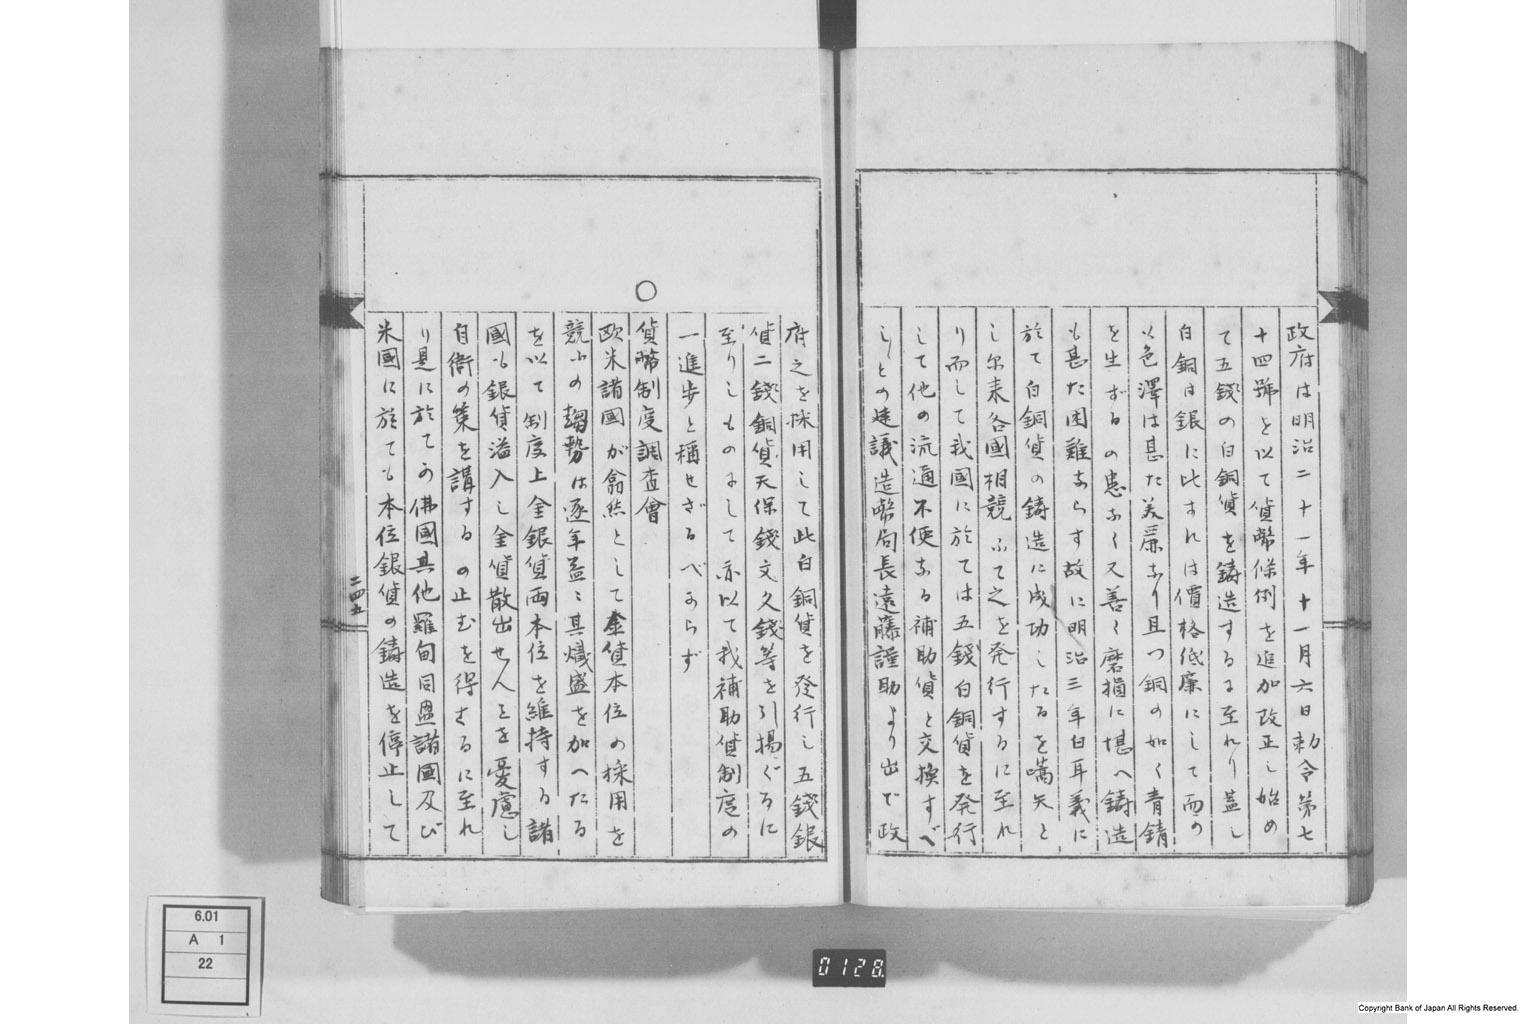 政府は明治二十一年十一月六日勅令第七
十四號を以て貨幣條例を追加改正し始め
て五錢の白銅貨を鋳造するに至れり蓋し
白銅は銀に比すれは價格低廉にして而の
も色澤は甚た美麗なり且つ銅の如く青錆
を生ずるの患なく又善く磨損に堪へ鋳造
も甚た困難ならす故に明治三年白耳義に
於て白銅貨の鋳造に成功したるを嚆矢と
し尓来各國相競ふて之を発行するに至れ
り而して我國に於ては五錢白銅貨を発行
して他の流通不便なる補助貨と交換すべ
しとの建議造幣局長遠藤謹助より出で政
府之を採用して此白銅貨を發行し五錢銀
貨二錢銅貨天保錢文久錢等を引揚ぐるに
至りしものにして亦以て我補助貨制度の
一進歩と稱せざるべからず
○
貨幣制度調査會
欧米諸國が翕然として金貨本位の採用を
競ふの趨勢は逐年益〻其熾盛を加へたる
を以て制度上金銀貨両本位を維持する諸
國も銀貨溢入し金貨散出せんことを憂慮し
自衛の策を講するの止むを得さるに至れ
り是に於てか佛國其他羅甸同盟諸國及び
米國に於ても本位銀貨の鋳造を停止して
二四五
6.01
A 1
22
0128
Copyright Bank of Japan All Rights Reserved.